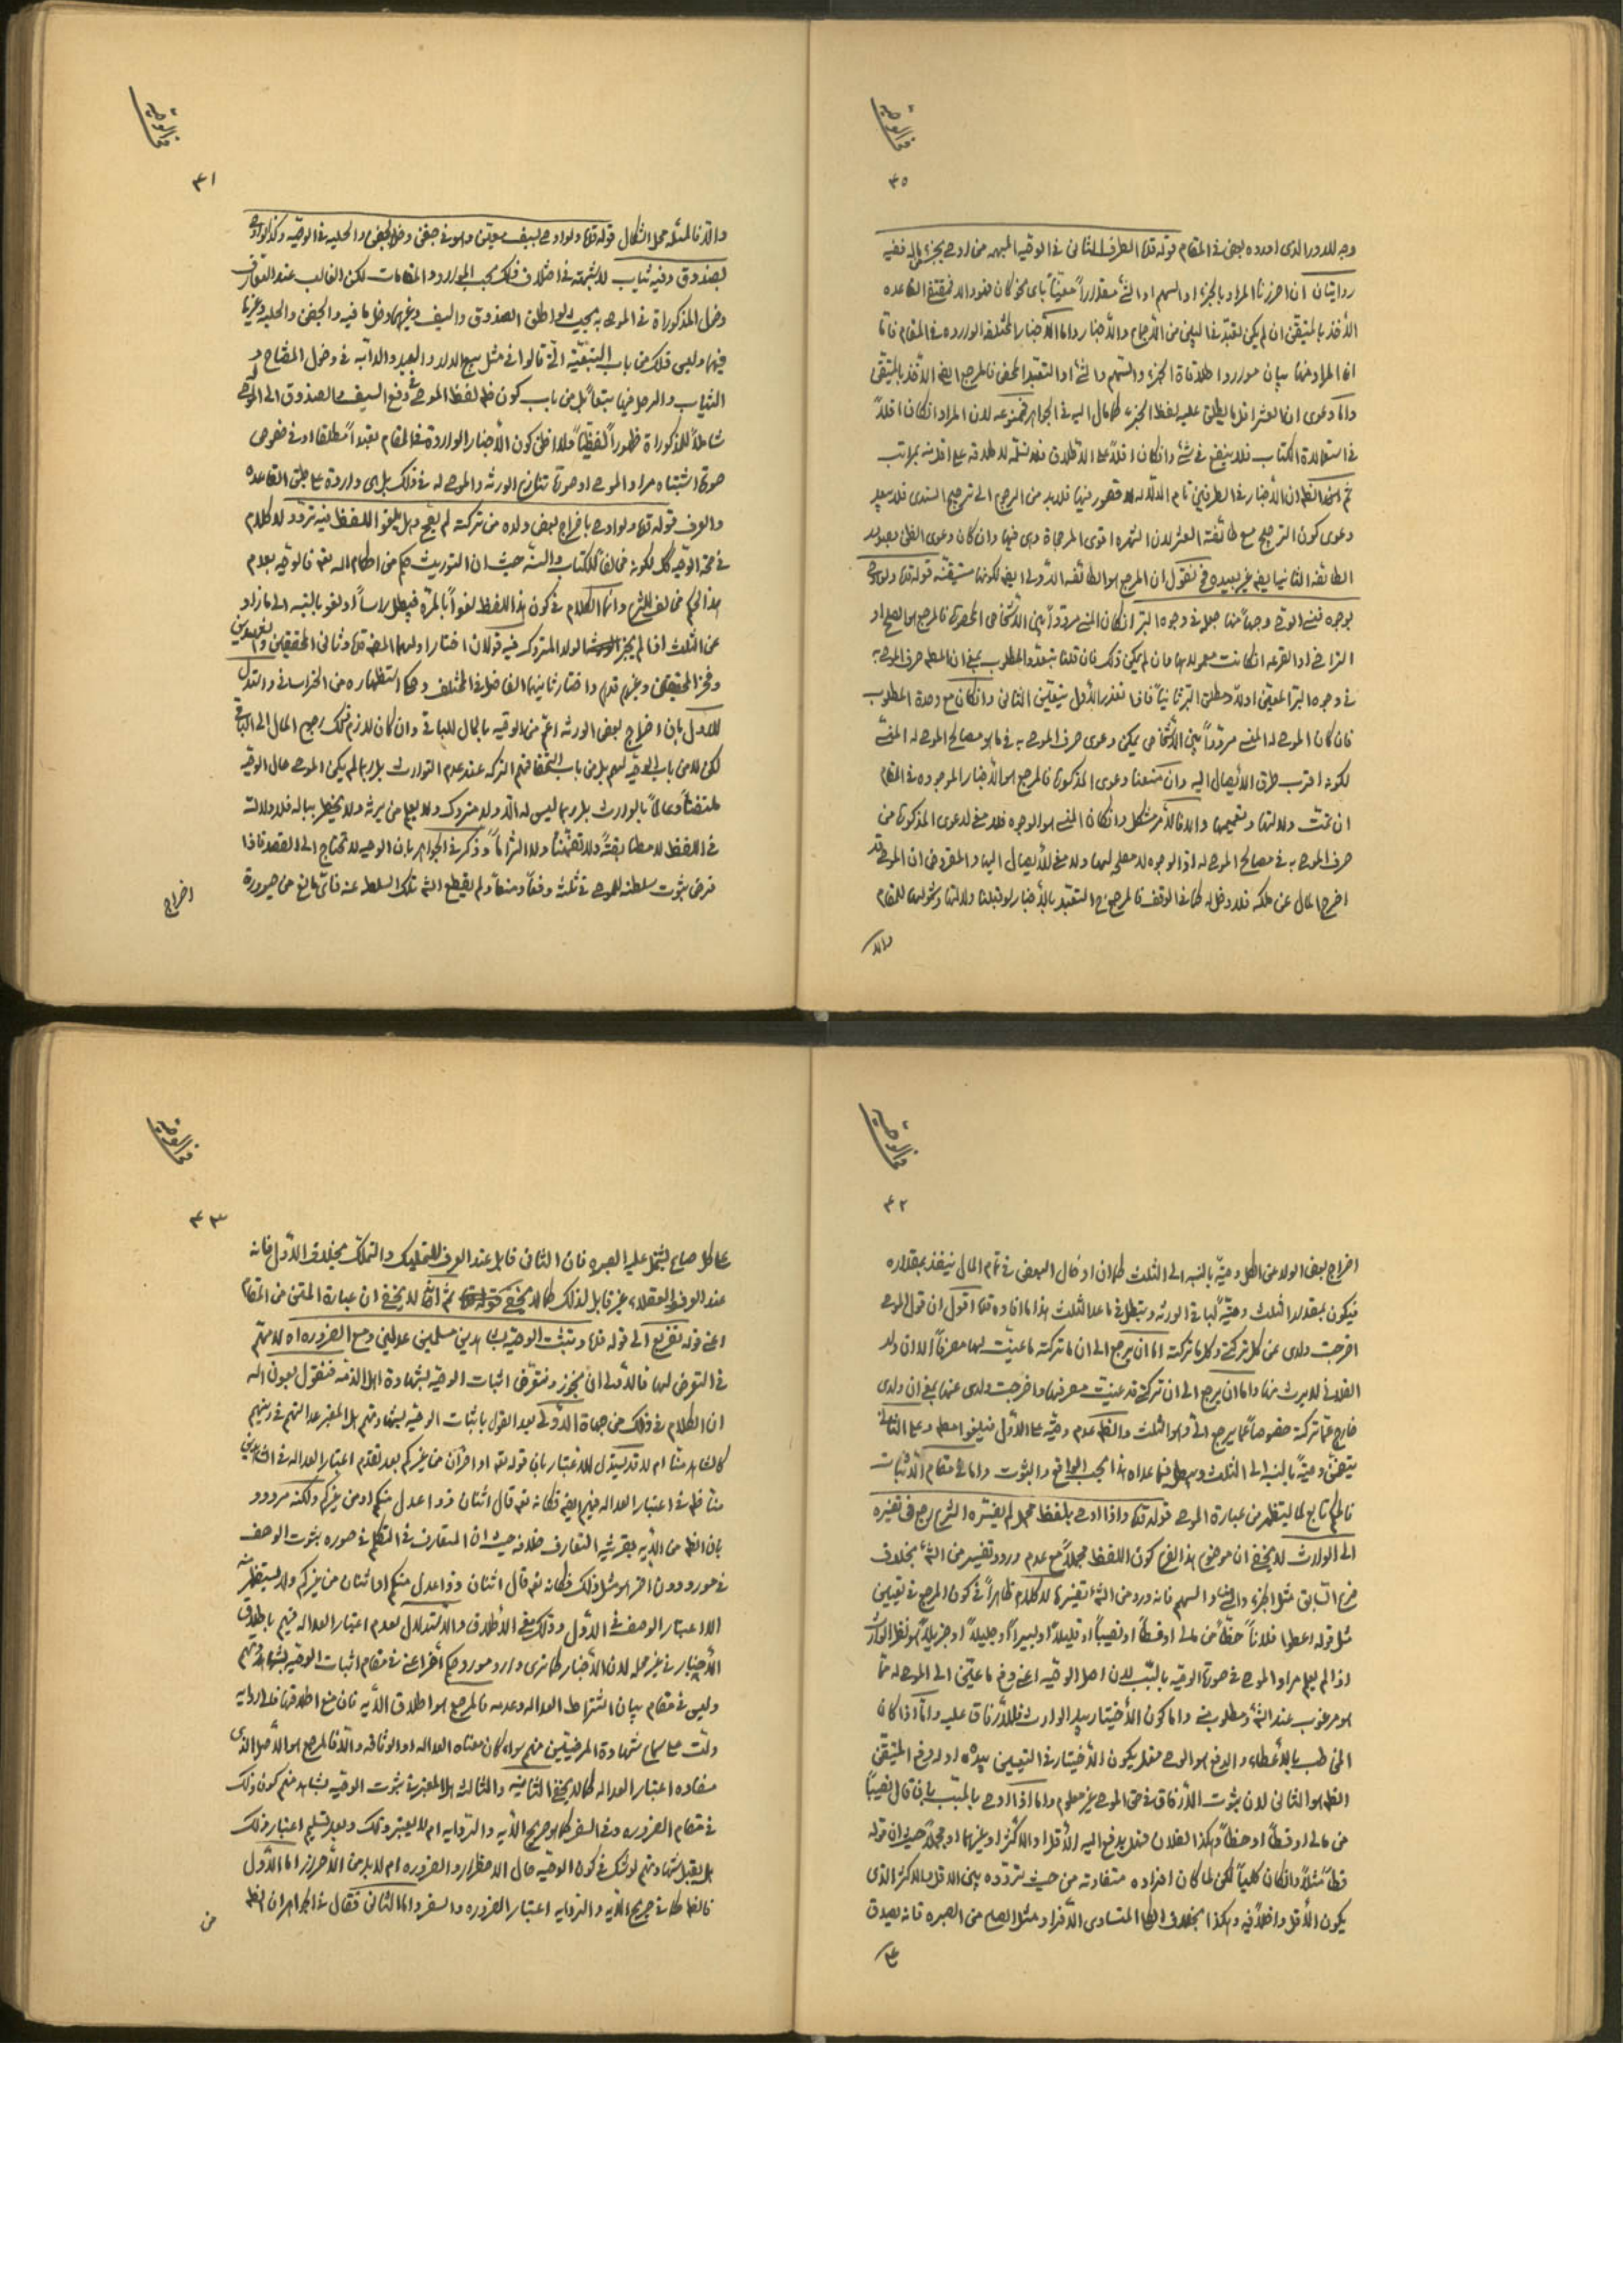 فى الوصية
۴۰
وجه للدور الذى اورده بعض فى المقام قوله قده الطرف الثانى فى الوصية المبهمه من اوصى بجزء من ماله ففيه
روايتان ان احرزنا المراد بالجزء او السهم او الشئ مقداراً معيناً باى نحو كان فهو والا فمقتضى القاعده
الأخذ بالمتيقن ان لم يكن تعبّد فى البين من الأجماع والأخبار واما الأخبار المختلفه الوارده فى المقام فاما
انما المراد منها بيان موارد اطلاقاة الجزء والسهم والشئ او التعبد المحض فالمرجع ايضاً الأخذ بالمتيقن
واما دعوى ان العشر اقل ما يطلق عليه لفظ الجزء كما مال اليه فى الجواهر فممنوعه لان المراد ان كان اقلاً
فى استعمالاة الكتاب فلا ينفع فى شئ وان كان اقلاً على الاطلاق فلا نسلمه لاطلاقه على اقل منه بمراتب
ثم الظ ان الأخبار فى الطرفين تام الدلاله لا قصور فيها فلابد من الرجوع الى ترجيح السندى فلا يبعد
دعوى كون الترجيح مع طائفة العشر لان الشهره اقوى المرجحاة وهى فيها وان كان دعوى الظن بصدور
الطائفه الثانيه ايضاً غير بعيده فح نقول ان المرجع هو الطائفه الأولى ايضاً لكونها متيقنه قوله قده ولو اوصى
بوجوه فنسى الوصى وجهاً منها جعل فى وجوه البر ان كان المنسى مردداً بين الأشخاص المحصورة فالمرجع هو الصلح او
التراضى او القرعه ان كانت معمولا بها وان لم يكن ذلك فان قلنا بتعدد المطلوب بمعنى ان المعلوم صرف الموصى به
فى وجوه البر المعين اولا ومطلق البر ثانياً فاذا تعذر الأول يتعين الثانى وان كان مع وحدة المطلوب
فان كان الموصى له المنسى مردداً بين الأشخاص يمكن دعوى صرف الموصى به فى ما هو مصالح الموصى له المنسى
لكونه اقرب طرق الأيصال اليه وان منعنا دعوى المذكورة فالمرجع هو الأخبار الموجوده فى المقام
ان تمت دلالتها وتعميمها والا فالأمر مشكل وان كان المنسى هو الوجوه فلا معنى لدعوى المذكورة من
صرف الموصى به فى مصالح الموصى له اذ الوجوه لا مصلحه لها ولا معنى للأيصال اليها والمفروض ان الموصى قد
اخرج المال عن ملكه فلا دخل له كما فى الوقف فالمرجع ح التعبد بالأخبار لو قبلنا دلالتها وشمولها للمقام
والا
فى الوصية
۴۱
والا فالمسئله محل اشكال قوله قده ولو اوصى بسيف معين وهو فى جفن دخل الجفن والحليه فى الوصيه وكذا لو اوصى
بصندوق وفيه ثياب لا شبهة فى اختلاف ذلك بحسب الموارد والمقامات لكن الغالب عند التعارف
دخول المذكوراة فى الموصى به بحيث لو اطلق الصندوق والسيف وغيرهما دخل ما فيه والجفن والحليه وغيرها
فيها وليس ذلك من باب التبعيّه التى قالوا فى مثل بيع الدار والعبد والدابّه فى دخول المفتاح و
الثياب والرحل فيها تبعاً بل من باب كون ظهور لفظ الموصى فى دفع السيف والصندوق الى الموصى له
شاملاً للمذكوراة ظهوراً لفظيّاً ولا اظن كون الأخبار الوارده فى المقام تعبداً مطلقا او فى خصوص
صورة اشتباه مراد الموصى او صورة تنازع الورثه والموصى له فى ذلك بل هى وارده على طبق القاعده
والعرف قوله قده ولو اوصى باخراج بعض ولده من تركته لم يصح وهل يلغو اللفظ فيه تردد لا كلام
فى صحة الوصيه كك لكونه مخالفاً للكتاب والسنه حيث ان التوريث حكم من احكام الله تعه فالوصيه بعدم
هذا الحكم مخالف للشرع وانما الكلام فى كون هذا اللفظ لغواً بالمرة فيبطل راساً او لغو بالنسبه الى مازاد
عن الثلث اذا لم يجز الولد المتروك فيه قولان اختار اولهما المصنف قده وثانى المحققين والشهيدين
وفخر المحققين وغيرهم قدهم واختار ثانيهما الفاضل فى المختلف وحكى استظهاره من الخراسانى واستدل
للأول بان اخراج بعض الورثه اعم من الوصيه بالمال للباقى وان كان لازم ذلك رجوع المال الى الباقى
لكن لا من باب الوصيه لهم بل من باب استحقاقهم التركه عند عدم الوارث بل ربما لم يكن الموصى حال الوصيه
ملتفتاً وعالماً بالوارث بل ربما ليس له الا ولد متروك ولا يعلم من يرثه ولا يخطر بباله فلا دلالت
فى اللفظ لا مطابقتاً ولا تضمّناً ولا التزاماً وذكر فى الجواهر بان الوصيه لا تحتاج الى القصد فاذا
فرض ثبوت سلطنه للموصى فى ثلثه دفعاً ومنعاً ولم يقطع الشه تلك السلطه عنه فاىّ مانع من صيرورة
اخراج
فى الوصية
۴۲
اخراج بعض الولد من الكل وصيّة بالنسبه الى الثلث كما ان ادخال البعض فى تمام المال ينفذ بمقداره
فيكون بمقدار الثلث وصيّة لباقى الورثه ويبطل فى ماعدا الثلث هذا ما افاده قده اقول ان قول الموصى
اخرجت ولدى عن كل تركتى وكل ما تركته اما ان يرجع الى ان ما تركته ما عينت لها مصرفاً الا ان ولد
الفلانى لا يرث منها واما ان يرجع الى ان تركتى قد عينت مصرفها واخرجت ولدى عنها بمعنى ان ولدى
خارج عمّا تركته خصوصاً عمّا يرجع الىّ وهو الثلث والظ عدم وصيّة على الأول فيلغو مطلقا وعلى الثانى
يتضمن وصيّة بالنسبه الى الثلث ويبطل فيما عداه هذا بحسب الواقع والثبوت واما فى مقام الأثبات
فالحكم تابع لما يستظهر من عبارة الموصى قوله قده واذا اوصى بلفظ مجمل لم يفسّره الشرع رجع فى تفسيره
الى الوارث لا يخفى ان موضوع هذا الفرع كون اللفظ مجملاً مع عدم ورود تفسير من الشه بخلاف
فرع السابق مثل الجزء والشئ والسهم فانه ورد من الشه تفسيرها لا كلام ظاهراً فى كون المرجع فى تعيين
مثل قوله اعطوا فلاناً حظاً من مالى او قسطاً او نصيباً او قليلاً او يسيراً او جليلاً او جزيلاً هو نظر الوارث
اذا لم يعلم مراد الموصى فى صورة الوصيه بالسبب لان اصل الوصيه اعنى دفع ما عين الى الموصى له مما
هو مرغوب عند الشه ومطلوب منه واما كون الأختيار بيد الوارث فللأرفاق عليه واما اذا كان
المخاطب بالأعطاء والدفع هو الوصى فهل يكون الأختيار فى التعيين بيده او يدفع المتيقن
الظ هو الثانى لان ثبوت الأرفاق فى حق الوصى غير معلوم واما اذا اوصى بالمسبّب بان قال نصيباً
من مالى او قسطاً او حظاً وهكذا لفلان فهل يدفع اليه الأقل او الاكثر او غيرهما او مجملاً حيث ان قوله
قسطاً مثلاً وان كان كلياً لكن لما كان افراده متفاوته من حيث تردده بين الاقل والاكثر الذى
يكون الأقل داخلاً فيه وهكذا بخلاف الكلى المتساوى الأفراد مثل الصاع من الصبره فانه يصدق
على
فى الوصية
۴۳
على كل صاع يشتمل عليه الصبره فان الثانى قابل عند العرف للتمليك والتملك بخلاف الأول فانه
عند العرف والعقلاء غير قابل لذلك كما لا يخفى ثم انه لا يخفى ان عبارة المتن من المقام
اعنى قوله تفريع الى قوله قده وتثبت الوصيّه بشاهدين مسلمين عدلين ومع الضروره اه لا مهم
فى التعرض لها فالأولى ان نجوز ونتعرض اثبات الوصيّه بشهادة اهل الذمّه فنقول بعون الله
ان الكلام فى ذلك من جهاة الأولى بعد القول باثبات الوصيّه بشهادتهم هل المعتبر عدالتهم فى دينهم
كالشاهد منّا ام لا قد يستدل للاعتبار بان قوله تعه او اخران من غيركم بعد تقدم اعتبار العداله فى الشاهدين
منّا ظه فى اعتبار العداله فيهم ايضاً فكانه تعه قال اثنان ذوا عدل منكم او من غيركم ولكنه مردود
بان الظه من الأيه بقرينه التعارف خلافه حيث ان المتعارف فى المتكلم فى صوره ثبوت الوصف
فى مورد دون اخر هو مثل ذلك فكانه تعه قال اثنان ذوا عدل منكم او اثنان من غيركم ولا يستظهر منه
الا اعتبار الوصف فى الأول وذلك معنى الأطلاق والاستدلال بعدم اعتبار العداله فيهم باطلاق
الأخبار فى غير محله لان الأخبار كما ترى وارد مورد حكم أخر اعنى فى مقام اثبات الوصيّه بشهادتهم
وليس فى مقام بيان اشتراط العداله وعدمه فالمرجع هو اطلاق الأيه فان منع اطلاقها فالروايه
دلّت على سماع شهادة المرضيين منهم سواء كان معناه العداله او الوثاقه والا فالمرجع هو الأصل الذى
مفاده اعتبار العداله كما لا يخفى الثانيه والثالثه هل المعتبر فى ثبوت الوصيّه بشاهد منهم كون ذلك
فى مقام الضروره وفى السفر كما هو صريح الأيه والروايه ام لا يعتبر ذلك وبعد تسليم اعتبار ذلك
هل يقبل شهادتهم لو شك فى كون الوصيّه حال الاحظرار والضروره ام لا بد من الأحراز اما الأول
فالظ كما فى صريح الأيه والروايه اعتبار الضروره والسفر واما الثانى فقال فى الجواهر ان الظ
من